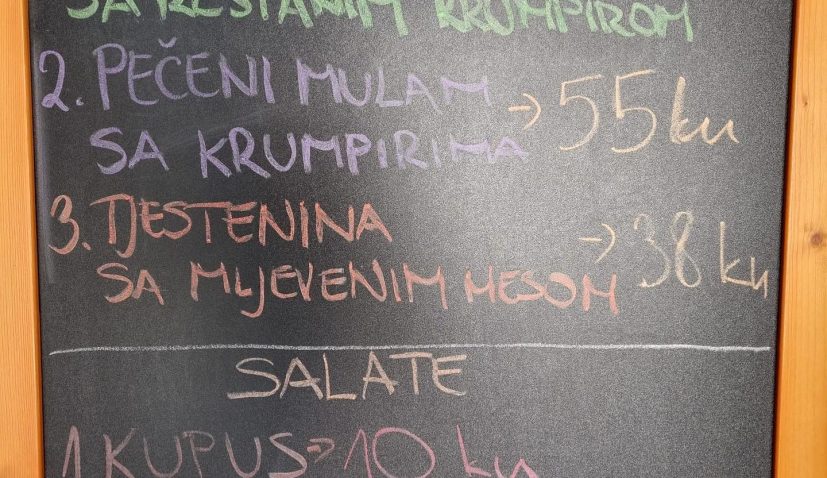 SA RESTANIM KRUMPIROM
2. PEČENI MULAM → 55 ku
SA KRUMPIRIMA
3. TJESTENINA → 38 ku
SA MLJEVENIM MESOM
SALATE
1. KUPUS → 10 ku